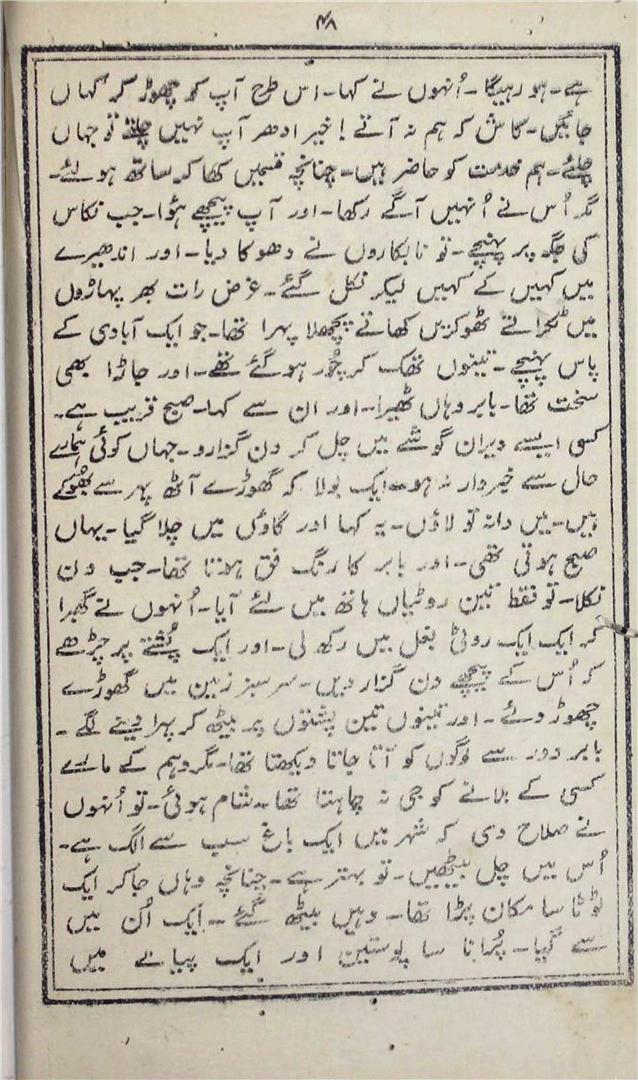 ۴۸
ہے۔ ہو رہیگا۔ اُنہوں نے کہا۔ اس طرح آپ کو چھوڑ کر کہاں
جائیں۔ کاش کہ ہم نہ آتے! خیر ادھر آپ نہیں چلتے تو جہاں
چلئے۔ ہم خدمت کو حاضر ہیں۔ چنانچہ قسمیں کھا کر ساتھ ہو لئے۔
مگر اُس نے اُنہیں آگے رکھا۔ اور آپ پیچھے ہؤا۔ جب نکاس
کی جگہ پر پہنچے۔ تو نابکاروں نے دھوکا دیا۔ اور اندھیرے
میں کہیں کے کہیں لیکر نکل گئے۔ غرض رات بھر پہاڑوں
میں ٹکراتے ٹھوکریں کھاتے پچھلا پہرا تھا۔ جو ایک آبادی کے
پاس پہنچے۔ تینوں تھک کر چُور ہو گئے تھے۔ اور جاڑا بھی
سخت تھا۔ بابر وہاں ٹھیرا۔ اور ان سے کہا۔ صبح قریب ہے۔
کسی ایسے ویران گوشے میں چل کر دن گزارو۔ جہاں کوئی ہمارے
حال سے خبردار نہ ہو۔ ایک بولا کہ گھوڑے آٹھ پہر سے بھُوکے
ہیں۔ میں دانہ تو لاؤں۔ یہ کہا اور گاؤں میں چلا گیا۔ یہاں
صبح ہوتی تھی۔ اور بابر کا رنگ فق ہوتا تھا۔ جب دن
نکلا۔ تو فقط تین روٹیاں ہاتھ میں لئے آیا۔ اُنہوں نے گھبرا
کر ایک ایک روٹی بغل میں رکھ لی۔ اور ایک پُشتے پر چڑھے
کہ اُس کے پیچھے دن گزار دیں۔ سرسبز زمین میں گھوڑے
چھوڑ دئے۔ اور تینوں تین پشتوں پر بیٹھ کر پہرا دینے لگے۔
بابر دور سے لوگوں کو آتا جاتا دیکھتا تھا۔ مگر وہم کے مارے
کسی کے بلانے کو جی نہ چاہتا تھا۔ شام ہوئی۔ تو اُنہوں
نے صلاح دی کہ شہر میں ایک باغ سب سے الگ ہے۔
اُس میں چل بیٹھیں۔ تو بہتر ہے۔ چنانچہ وہاں جا کر ایک
ٹوٹا سا مکان پڑا تھا۔ وہیں بیٹھ گئے۔ ایک اُن میں
سے گیا۔ پُرانا سا پوستین اور ایک پیالے میں